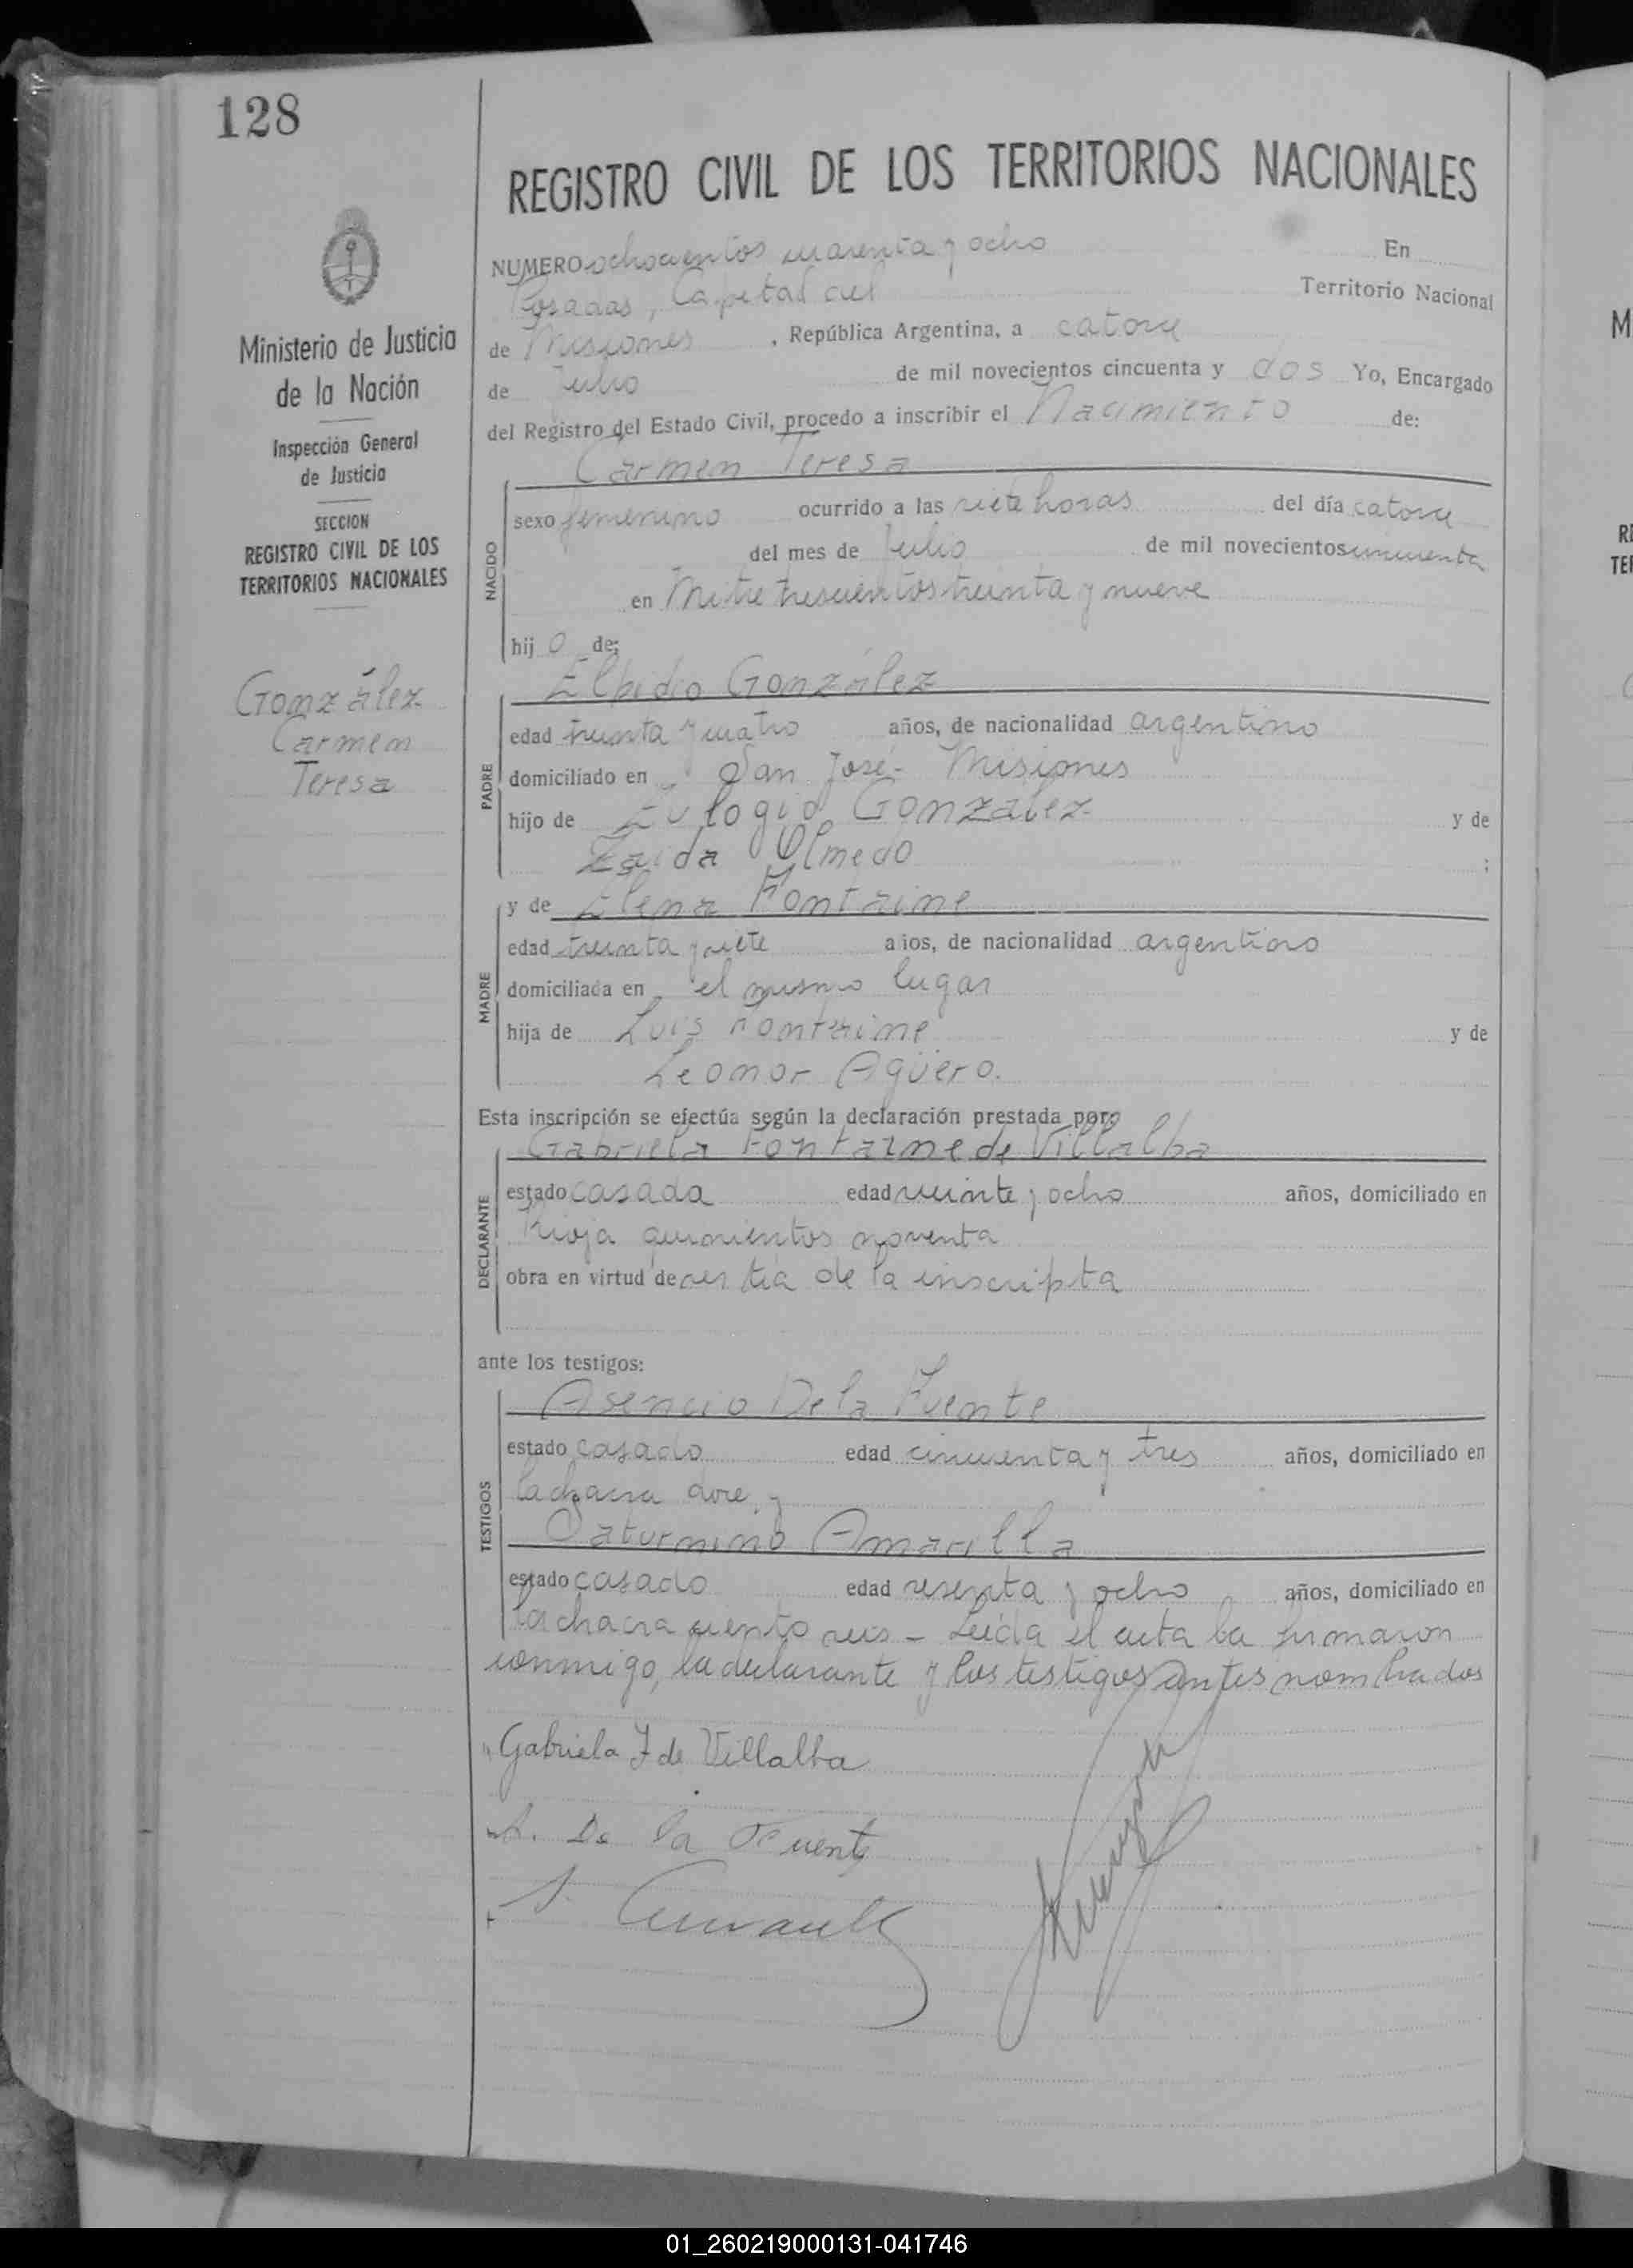 128
REGISTRO CIVIL DE LOS TERRITORIOS NACIONALES
Ministerio de Justicia
de la Nación
Inspección General
de Justicia
SECCION
REGISTRO CIVIL DE LOS
TERRITORIOS NACIONALES
González
Carmen
Teresa
NUMERO ochocientos cuarenta y ocho En
Posadas, Capital del Territorio Nacional
de Misiones, República Argentina, a catorce
de Julio de mil novecientos cincuenta y dos Yo, Encargado
del Registro del Estado Civil, procedo a inscribir el Nacimiento de:
Carmen Teresa
NACIDO
sexo femenino ocurrido a las siete horas del día catorce
del mes de Julio de mil novecientos cincuenta
en Mitre trescientos treinta y nueve
hij o de:
Elpidio González
PADRE
edad treinta y cuatro años, de nacionalidad argentino
domiciliado en San José - Misiones
hijo de Eulogio Gonzalez y de
Zaida Olmedo ;
y de Elena Fontaine
MADRE
edad treinta y siete años, de nacionalidad argentino
domiciliada en el mismo lugar
hija de Luis Fontaine y de
Leonor Agüero.
Esta inscripción se efectúa según la declaración prestada por:
Gabriela Fontaine de Villalba
DECLARANTE
estado casada edad veinte y ocho años, domiciliado en
Rioja quinientos noventa
obra en virtud de ser tía de la inscripta
ante los testigos:
Asencio De la Fuente
TESTIGOS
estado casado edad cincuenta y tres años, domiciliado en
la chacra doce, y
Saturnino Amarilla
estado casado edad sesenta y ocho años, domiciliado en
la chacra ciento seis - Leída el acta la firmaron
conmigo, la declarante y los testigos antes nombrados
Gabriela F de Villalba
A. De la Fuente
S.
01_260219000131-041746